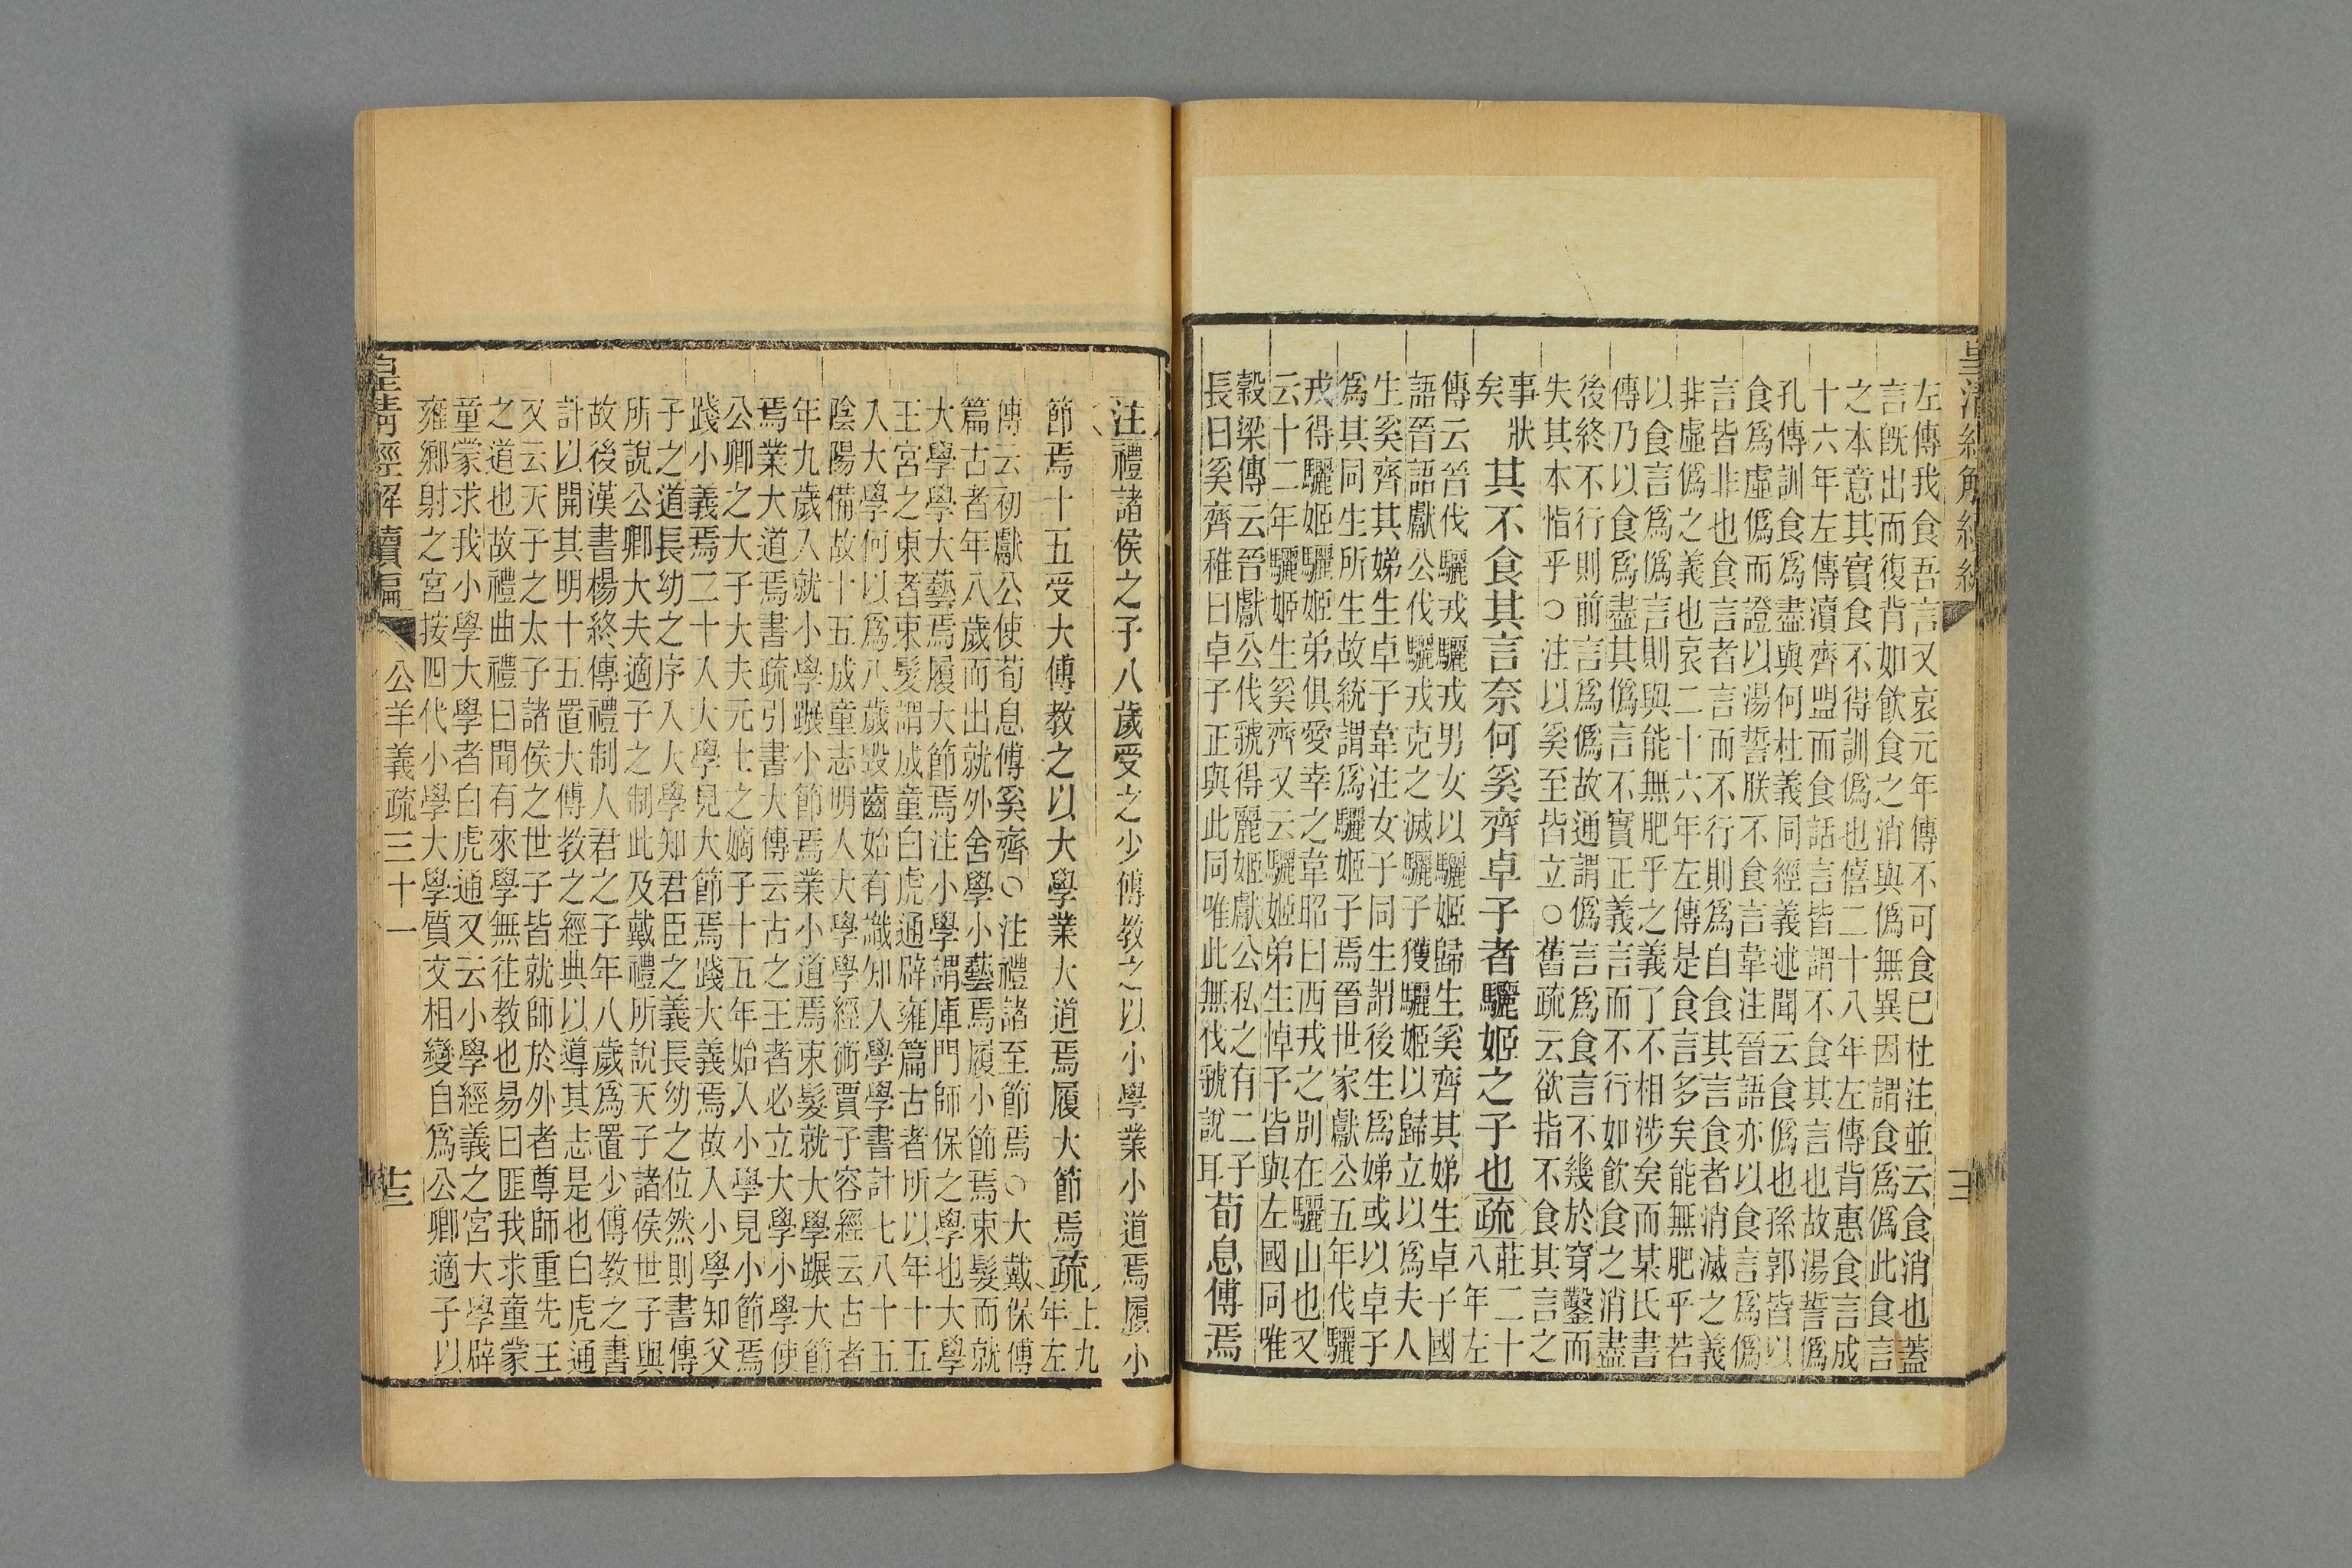 左傳我食吾言又哀元年傳不可食已杜注並云食消也蓋
言旣出而復背如飲食之消與僞無異因謂食爲僞此食言
之本意其實食不得訓僞也僖二十八年左傳背惠食言成
十六年左傳瀆齊盟而食話言皆謂不食其言也故湯誓僞
孔傳訓食爲盡與何杜義同經義述聞云食僞也孫郭皆以
食爲虛僞而證以湯誓朕不食言韋注晉語亦以食言爲僞
言皆非也食言者言而不行則爲自食其言食者消滅之義
非虛僞之義也哀二十六年左傳是食言多矣能無肥乎若
以食言爲僞言則與能無肥乎之義了不相涉矣而某氏書
傳乃以食爲盡其僞言不實正義言而不行如飲食之消盡
後終不行則前言爲僞故通謂僞言爲食言不幾於穿鑿而
失其本恉乎○注以奚至皆立○舊疏云欲指不食其言之
事狀
矣
其不食其言奈何奚齊卓子者驪姬之子也疏
莊二十
八年左
傳云晉伐驪戎驪戎男女以驪姬歸生奚齊其娣生卓子國
語晉語獻公伐驪戎克之滅驪子獲驪姬以歸立以爲夫人
生奚齊其娣生卓子韋注女子同生謂後生爲娣或以卓子
爲其同生所生故統謂爲驪姬子焉晉世家獻公五年伐驪
戎得驪姬驪姬弟俱愛幸之韋昭曰西戎之別在驪山也又
云十二年驪姬生奚齊又云驪姬弟生悼子皆與左國同唯
穀梁傳云晉獻公伐虢得麗姬獻公私之有二子
長曰奚齊稚曰卓子正與此同唯此無伐虢說耳
荀息傅焉
注禮諸侯之子八歲受之少傅教之以小學業小道焉履小
節焉十五受大傅教之以大學業大道焉履大節焉疏
上九
年左
傳云初獻公使荀息傅奚齊○注禮諸至節焉○大戴保傅
篇古者年八歲而出就外舍學小藝焉履小節焉束髮而就
大學學大藝焉履大節焉注小學謂庫門師保之學也大學
王宮之東者束髮謂成童白虎通辟雍篇古者所以年十五
入大學何以爲八歲毀齒始有識知入學學書計七八十五
陰陽備故十五成童志明入大學學經術賈子容經云古者
年九歲入就小學蹍小節焉業小道焉束髮就大學蹍大節
焉業大道焉書疏引書大傳云古之王者必立大學小學使
公卿之大子大夫元士之嫡子十五年始入小學見小節焉
踐小義焉二十入大學見大節焉踐大義焉故入小學知父
子之道長幼之序入大學知君臣之義長幼之位然則書傳
所說公卿大夫適子之制此及戴禮所說天子諸侯世子與
故後漢書楊終傳禮制人君之子年八歲爲置少傅教之書
計以開其明十五置大傅教之經典以導其志是也白虎通
又云天子之太子諸侯之世子皆就師於外者尊師重先王
之道也故禮曲禮曰聞有來學無往教也易曰匪我求童蒙
童蒙求我小學大學者白虎通又云小學經義之宮大學辟
雍鄉射之宮按四代小學大學質文相變自爲公卿適子以
皇清經解續編
公羊義疏三十一